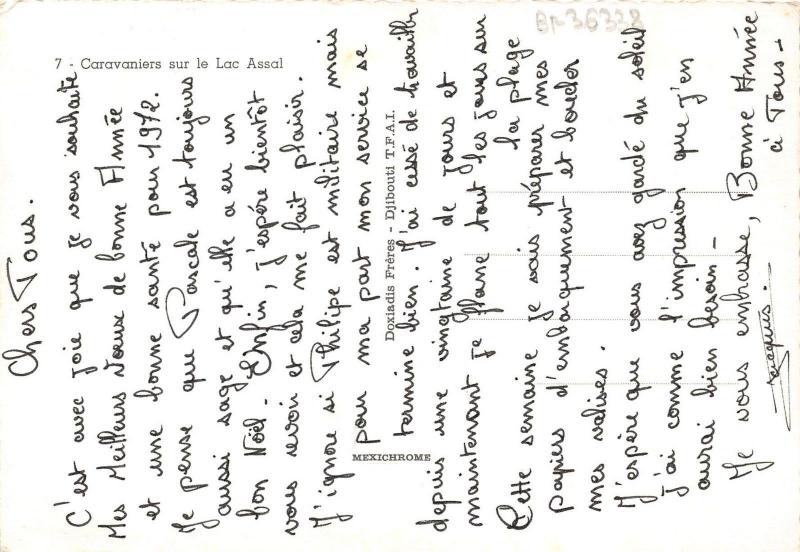 BP 36328
7 - Caravaniers sur le Lac Assal
Doxiadis Frères - Djibouti T.F.A.I.
MEXICHROME
Chers Tous.
C'est avec joie que je vous souhaite
Mes Meilleurs Voeux de bonne Année
et une bonne santé pour 1972.
Je pense que Pascale est toujours
aussi sage et qu'elle a eu un
bon Noël - Enfin, j'espère bientôt
vous revoir et cela me fait plaisir.
J'ignore si Philipe est militaire mais
pour ma part mon service se
termine bien. J'ai cessé de travailler
depuis une vingtaine de jours et
maintenant je flane tout les jours sur
la plage
Cette semaine je vais préparer mes
papiers d'embarquement et boucler
mes valises.
J'espère que vous avez gardé du soleil
j'ai comme l'impression que j'en
aurai bien besoin -
Je vous embrasse, Bonne Année
à Tous -
Jacques.